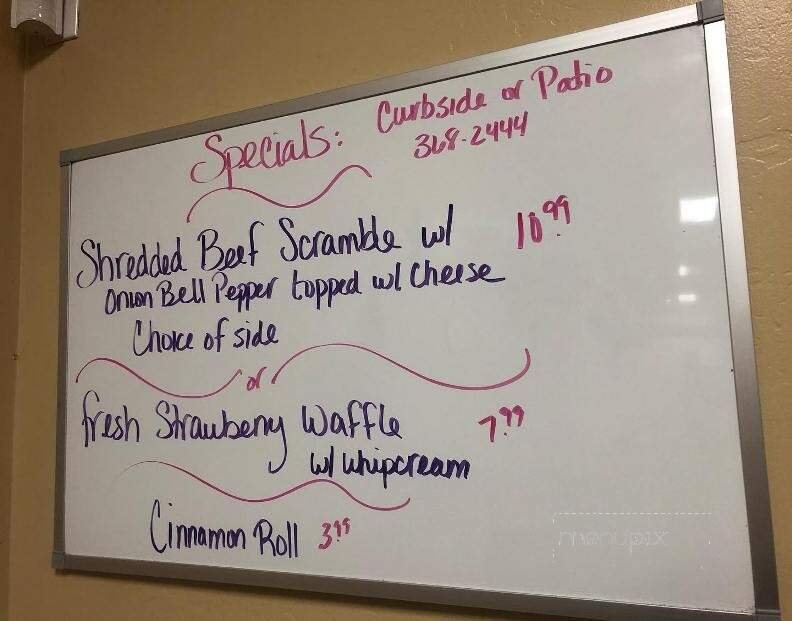 Specials: Curbside or Patio
368-2444
Shredded Beef Scramble w/ 10.99
Onion Bell Pepper topped w/ cheese
Choice of side
or
fresh Strawberry Waffle 7.99
w/ whipcream
Cinnamon Roll 3.99
menupix